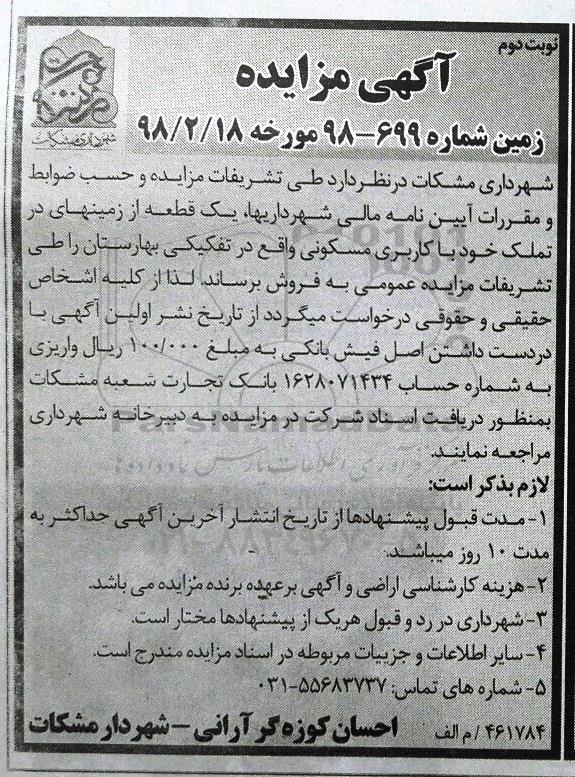 نوبت دوم
آگهی مزایده
زمین شماره ۶۹۹-۹۸ مورخه ۹۸/۲/۱۸
شهرداری مشکات
شهرداری مشکات درنظردارد طی تشریفات مزایده و حسب ضوابط
و مقررات آیین نامه مالی شهرداریها، یک قطعه از زمینهای در
تملک خود با کاربری مسکونی واقع در تفکیکی بهارستان را طی
تشریفات مزایده عمومی به فروش برساند. لذا از کلیه اشخاص
حقیقی و حقوقی درخواست میگردد از تاریخ نشر اولین آگهی با
دردست داشتن اصل فیش بانکی به مبلغ ۱۰۰/۰۰۰ ریال واریزی
به شماره حساب ۱۶۲۸۰۷۱۴۳۴ بانک تجارت شعبه مشکات
بمنظور دریافت اسناد شرکت در مزایده به دبیرخانه شهرداری
مراجعه نمایند.
لازم بذکر است:
۱- مدت قبول پیشنهادها از تاریخ انتشار آخرین آگهی حداکثر به
مدت ۱۰ روز میباشد.
۲- هزینه کارشناسی اراضی و آگهی برعهده برنده مزایده می باشد.
۳- شهرداری در رد و قبول هریک از پیشنهادها مختار است.
۴- سایر اطلاعات و جزییات مربوطه در اسناد مزایده مندرج است.
۵- شماره های تماس: ۵۵۶۸۳۷۳۷-۰۳۱
۴۶۱۷۸۴ / م الف
احسان کوزه گر آرانی - شهردار مشکات